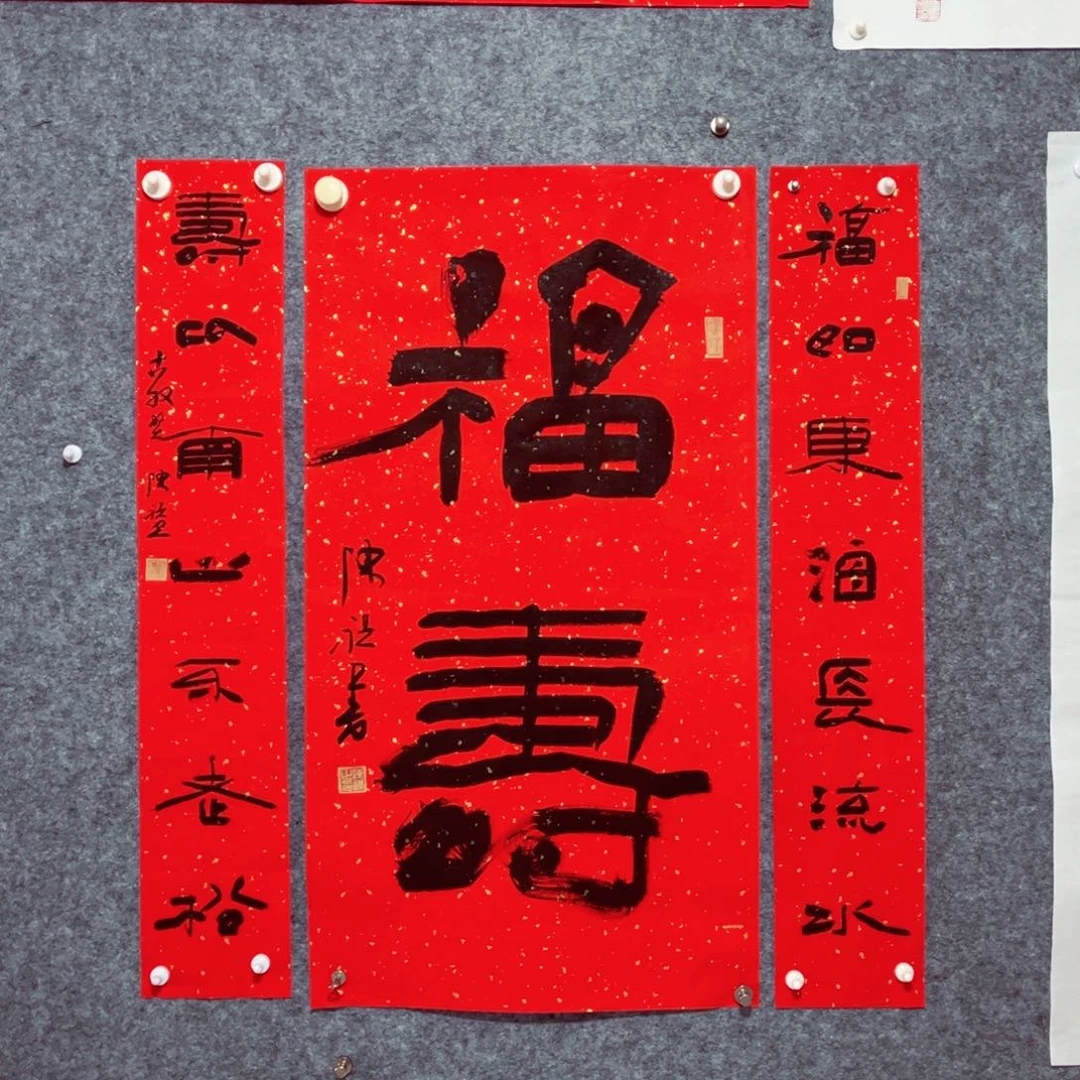 福如東海長流水
福壽
陳 書
壽以南山不老松
陳